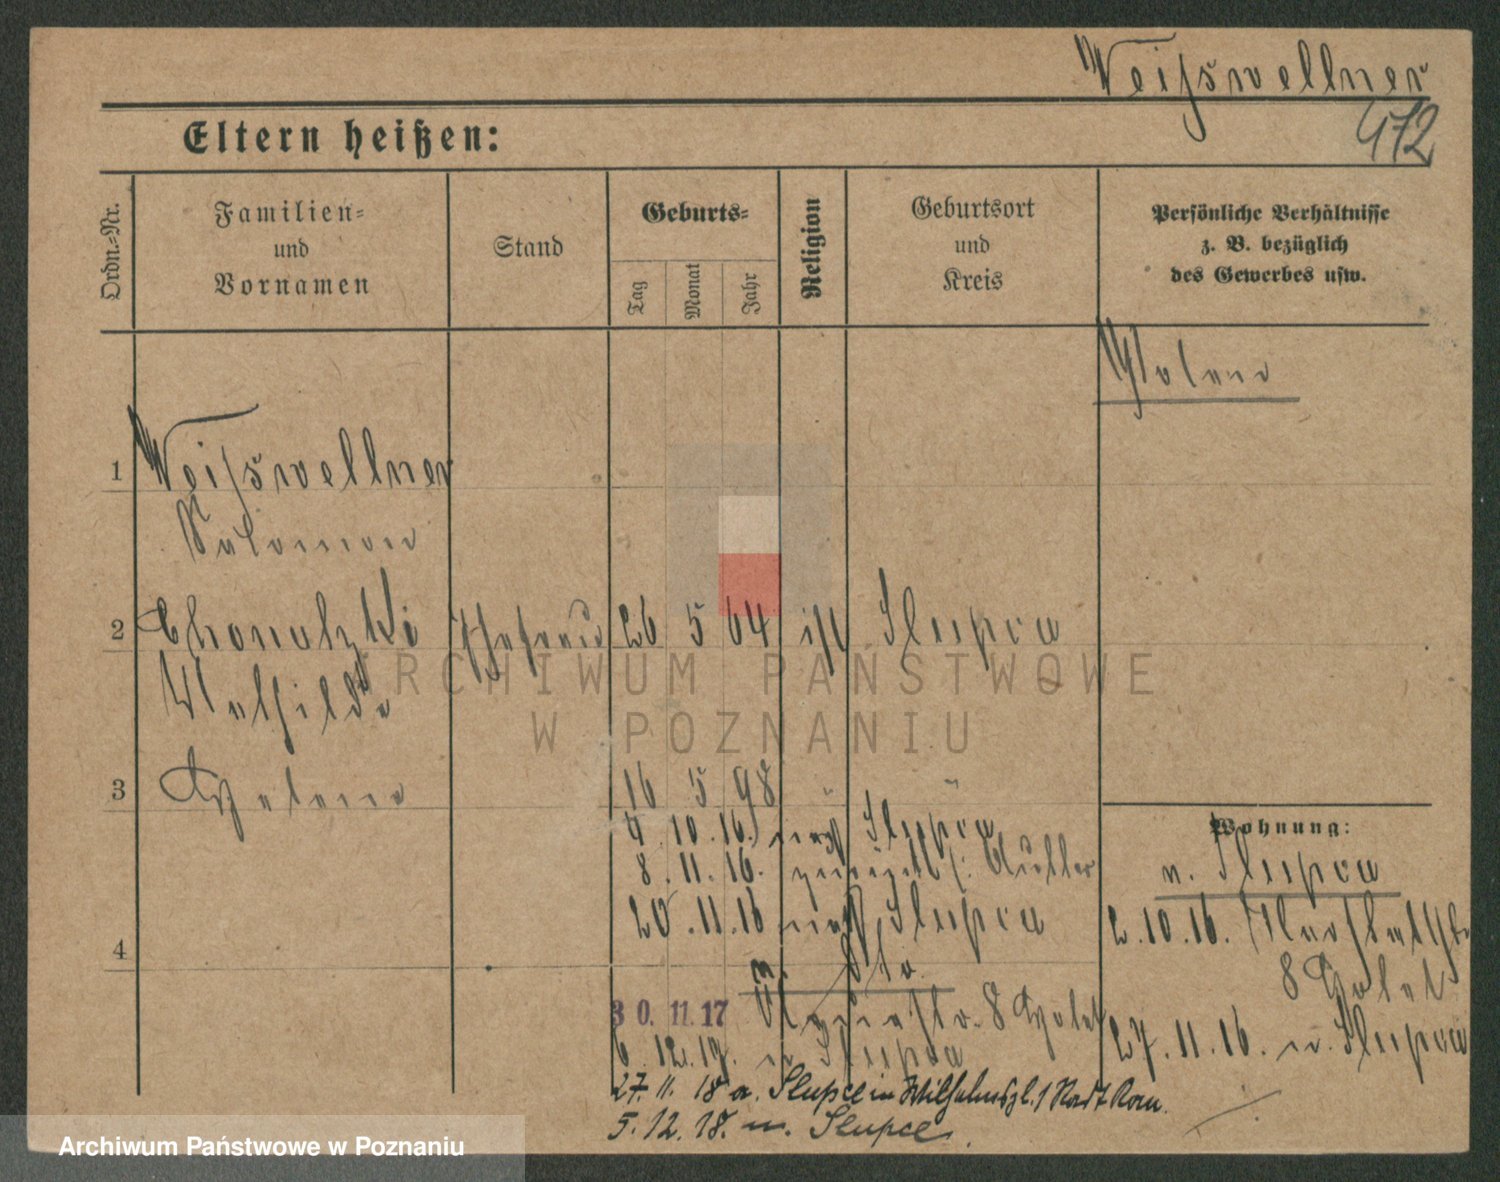 Weißwellner
472
Eltern heißen:
Ordn.-Nr.
Familien-
und
Vornamen
Stand
Geburts-
Tag
Monat
Jahr
Religion
Geburtsort
und
Kreis
Persönliche Verhältnisse
z. B. bezüglich
des Gewerbes usw.
Polen
1 Weißwellner
Salomon
2 Ehefrau 26 5 64 isr Slupca
Mathilde
3 Helene 16 5 98 " "
4. 10. 16. nach Slupca
Wohnung:
8. 11. 16. zurück
n. Slupca
20. 11. 16 nach Slupca
2. 10. 16.
4
8 Hotel
30. 11. 17 8 Hotel
27. 11. 16. n. Slupca
6. 12. 17. n Slupca
27. 11. 18 a. Slupce in
5. 12. 18. n. Slupce.
ARCHIWUM PAŃSTWOWE
W POZNANIU
Archiwum Państwowe w Poznaniu